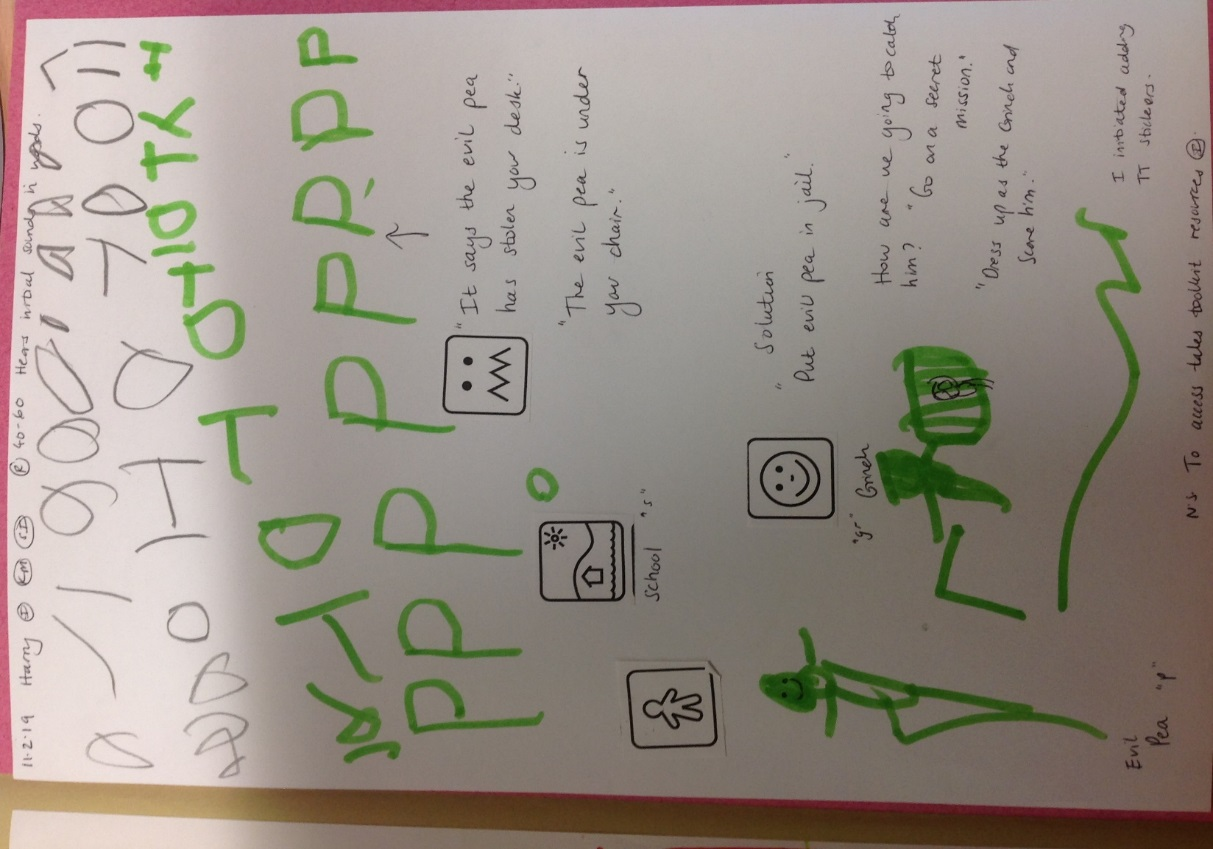 11.2.19 Harry Ⓘ ⓀⓂ Ⓡ 40-60 Hears initial sounds in words.
P P P P P P P P
"It says the evil pea
has stolen your desk."
"The evil pea is under
your chair."
school "s"
"Solution
Put evil pea in jail."
"gr" Grinch
How are we going to catch
him? "Go on a secret
mission."
"Dress up as the Grinch and
scare him."
Evil
Pea "p"
I initiated adding
TT stickers.
N.S To access tales toolkit resources Ⓘ.